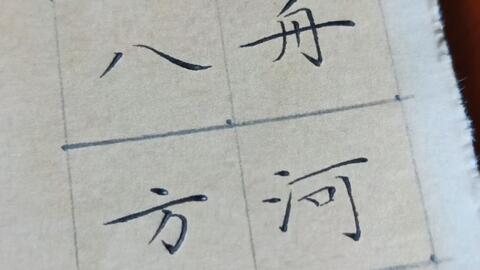 舟河
八方